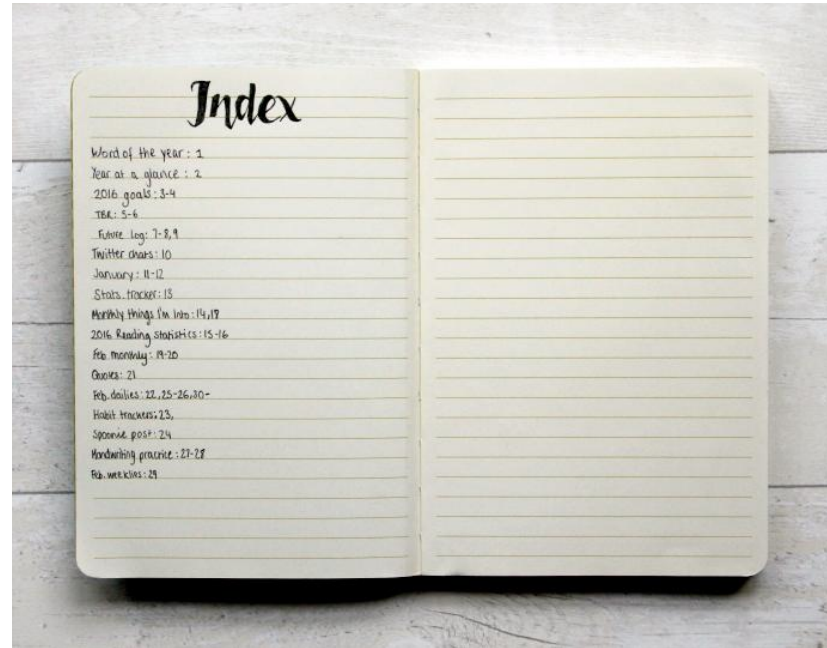 Index
Word of the year: 1
Year at a glance: 2
2016 goals: 3-4
TBR: 5-6
Future Log: 7-8,9
Twitter chats: 10
January: 11-12
Stats. tracker: 13
Monthly things I'm into: 14,18
2016 Reading Statistics: 15-16
Feb. monthly: 19-20
Quotes: 21
Feb. dailies: 22, 25-26, 30-
Habit trackers: 23,
Spoonie post: 24
Handwriting practice: 27-28
Feb. weeklies: 29